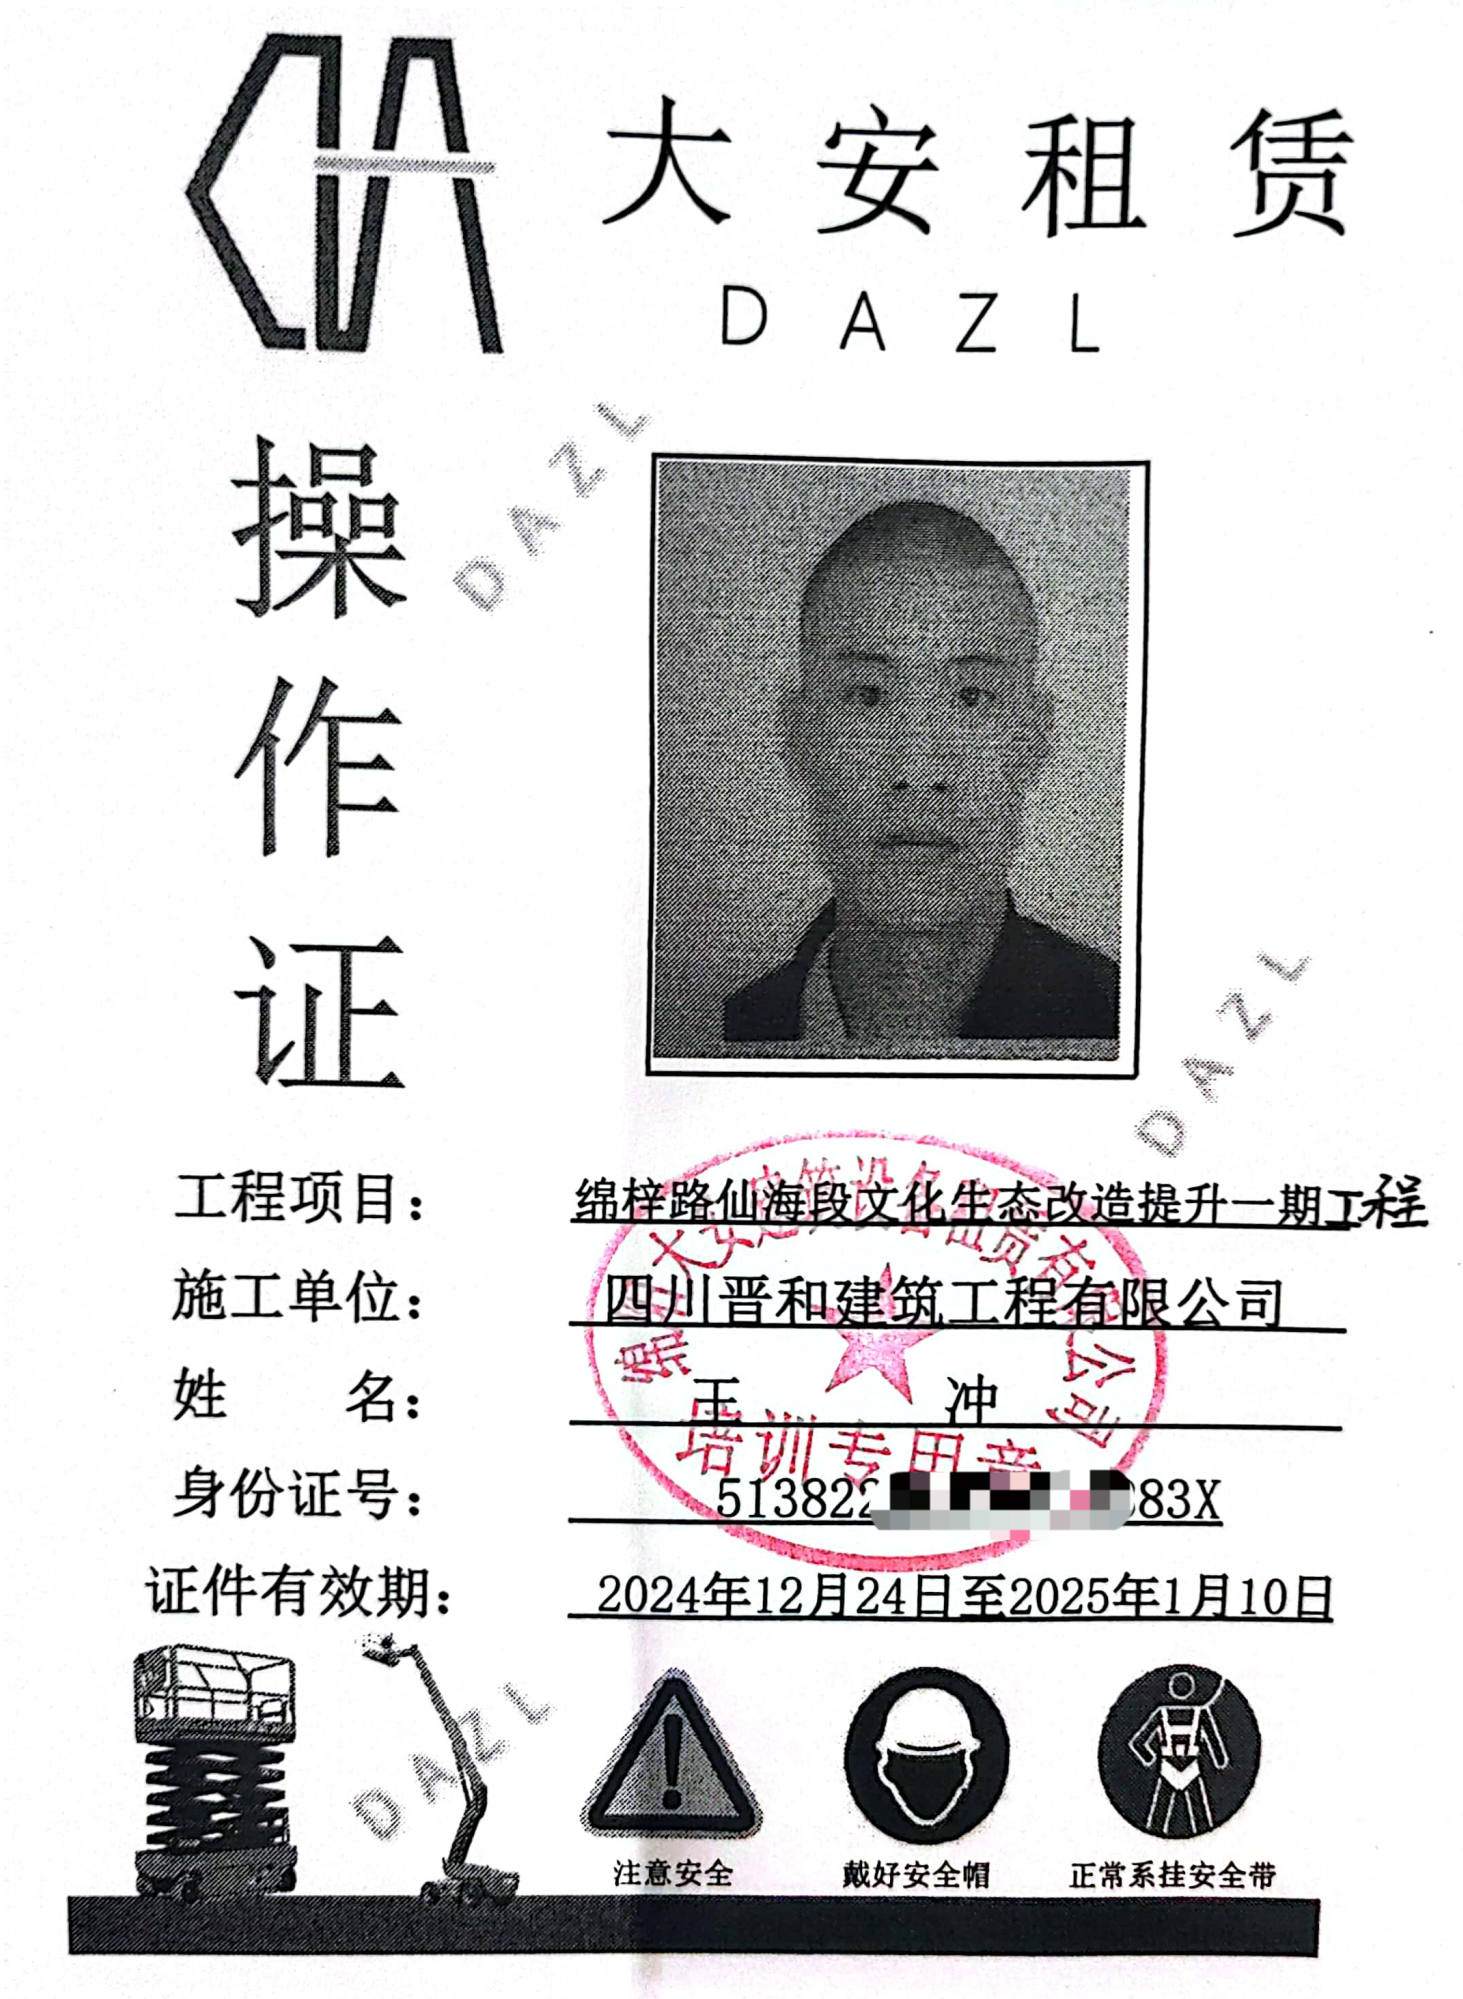 大安租赁
DAZL
操作证
DAZL
DAZL
工程项目： 绵梓路仙海段文化生态改造提升一期工程
施工单位： 四川晋和建筑工程有限公司
姓 名： 王 冲
身份证号： 513822 83X
证件有效期： 2024年12月24日至2025年1月10日
绵阳大安建筑设备租赁有限公司
培训专用章
DAZL
注意安全 戴好安全帽 正常系挂安全带